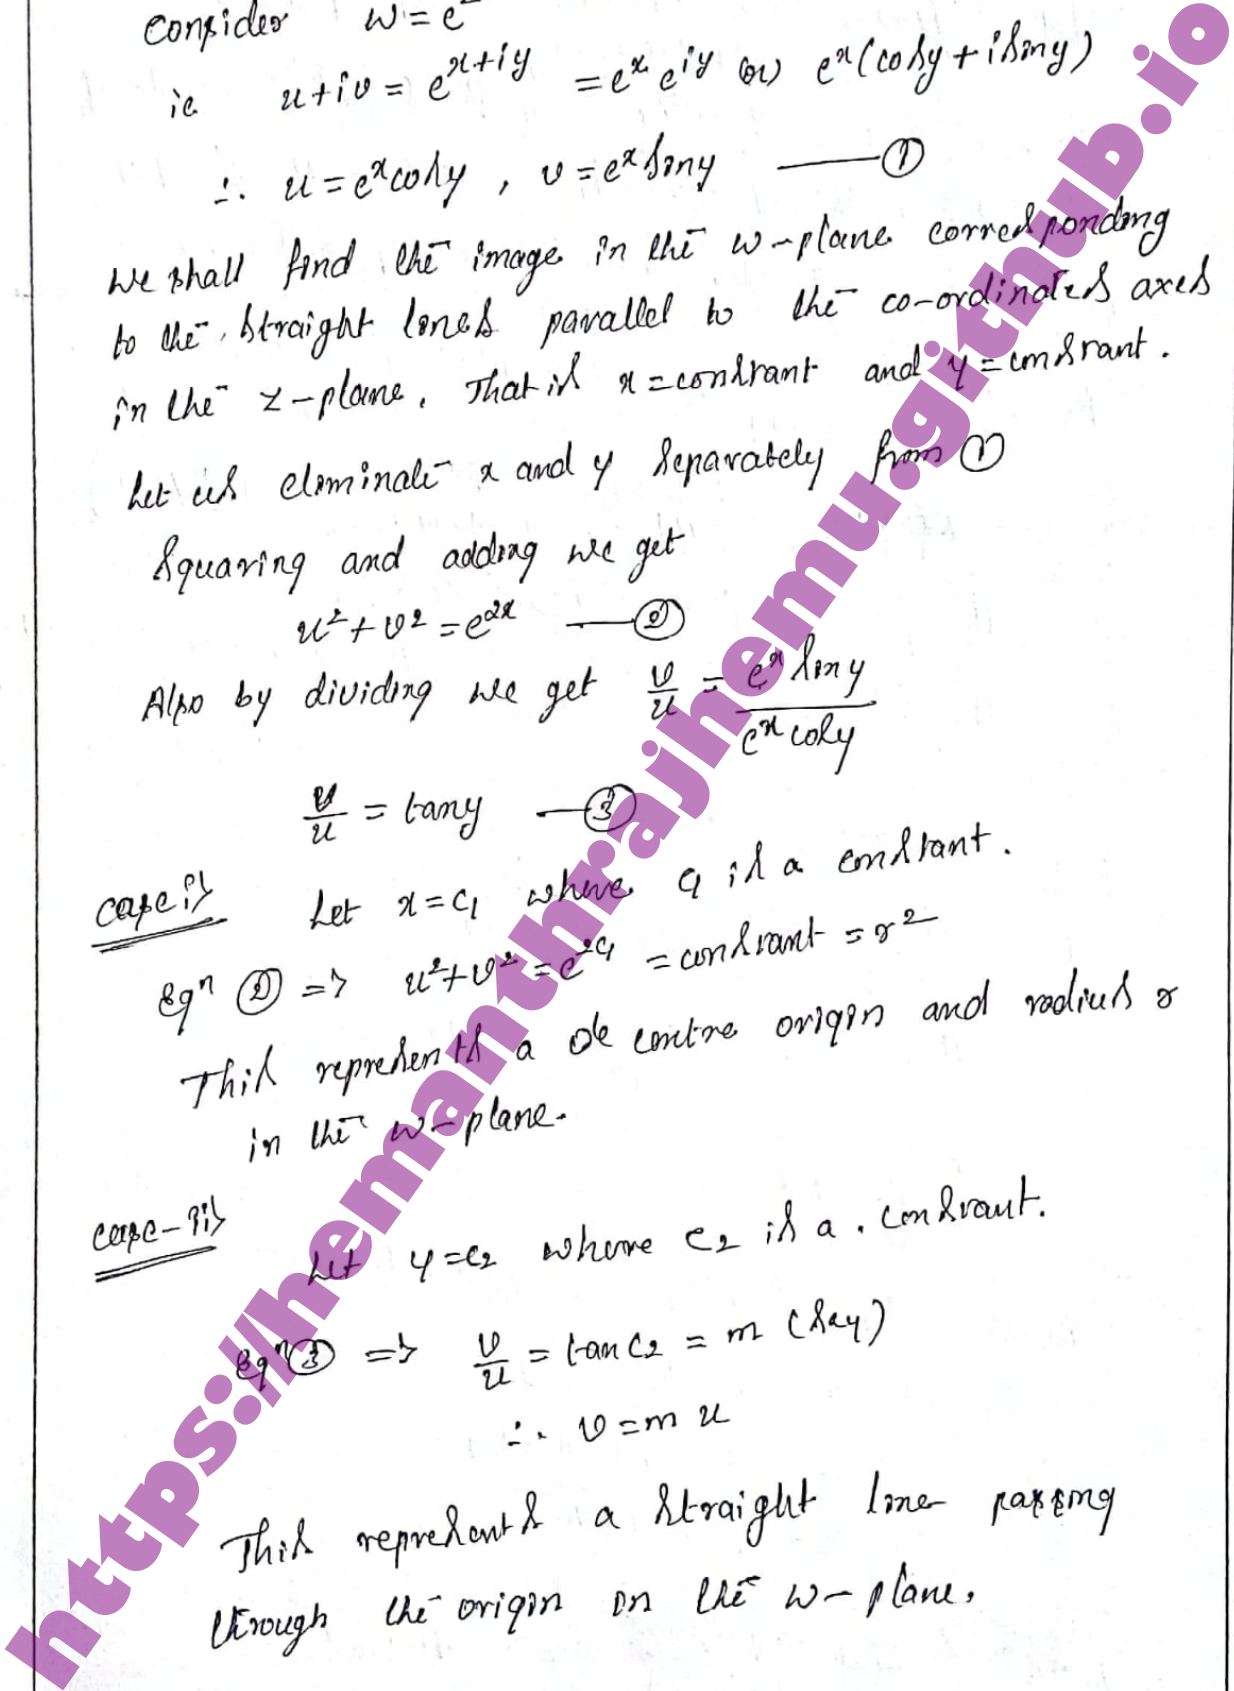 Consider w = e^z
ie u+iv = e^{x+iy} = e^x e^{iy} (or) e^x (cosy + isiny)
∴ u = e^x cosy , v = e^x siny —— ①
we shall find the image in the w-plane corresponding
to the straight lines parallel to the co-ordinates axes
in the z-plane. That is x = constant and y = constant.
Let us eliminate x and y separately from ①
Squaring and adding we get
u² + v² = e^{2x} —— ②
Also by dividing we get v/u = e^x siny / e^x cosy
v/u = tany —— ③
case i> Let x = c₁ where c₁ is a constant.
Eqⁿ ② => u² + v² = e^{2c₁} = constant = r²
This represents a ⊙le centre origin and radius r
in the w-plane.
case-ii> Let y = c₂ where c₂ is a constant.
Eqⁿ ③ => v/u = tan c₂ = m (say)
∴ v = m u
This represents a straight line passing
through the origin in the w-plane.
https://hemanthrajhemu.github.io